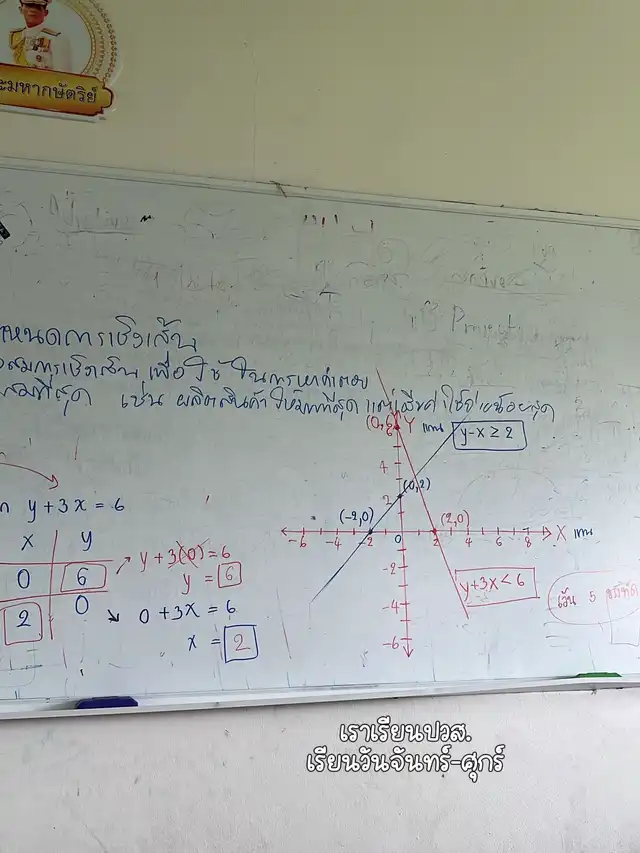 ะมหากษัตริย์
ำหนดการเชิงเส้น
สมการเชิงเส้น เพื่อใช้ในการหาคำตอบ
สมที่สุด เช่น ผลิตสินค้าให้มากที่สุด แต่เสียค่าใช้จ่ายน้อยสุด
y + 3x = 6
x y
0 6
2 0
y + 3(0) = 6
y = 6
0 + 3x = 6
x = 2
(0,6) Y แกน
y-x ≥ 2
6
4
2
(0,2)
(-2,0) (2,0)
-6 -4 -2 0 2 4 6 8 X แกน
-2
-4
-6
y+3x < 6
เว้น 5 บรรทัด
เราเรียนปวส.
เรียนวันจันทร์-ศุกร์